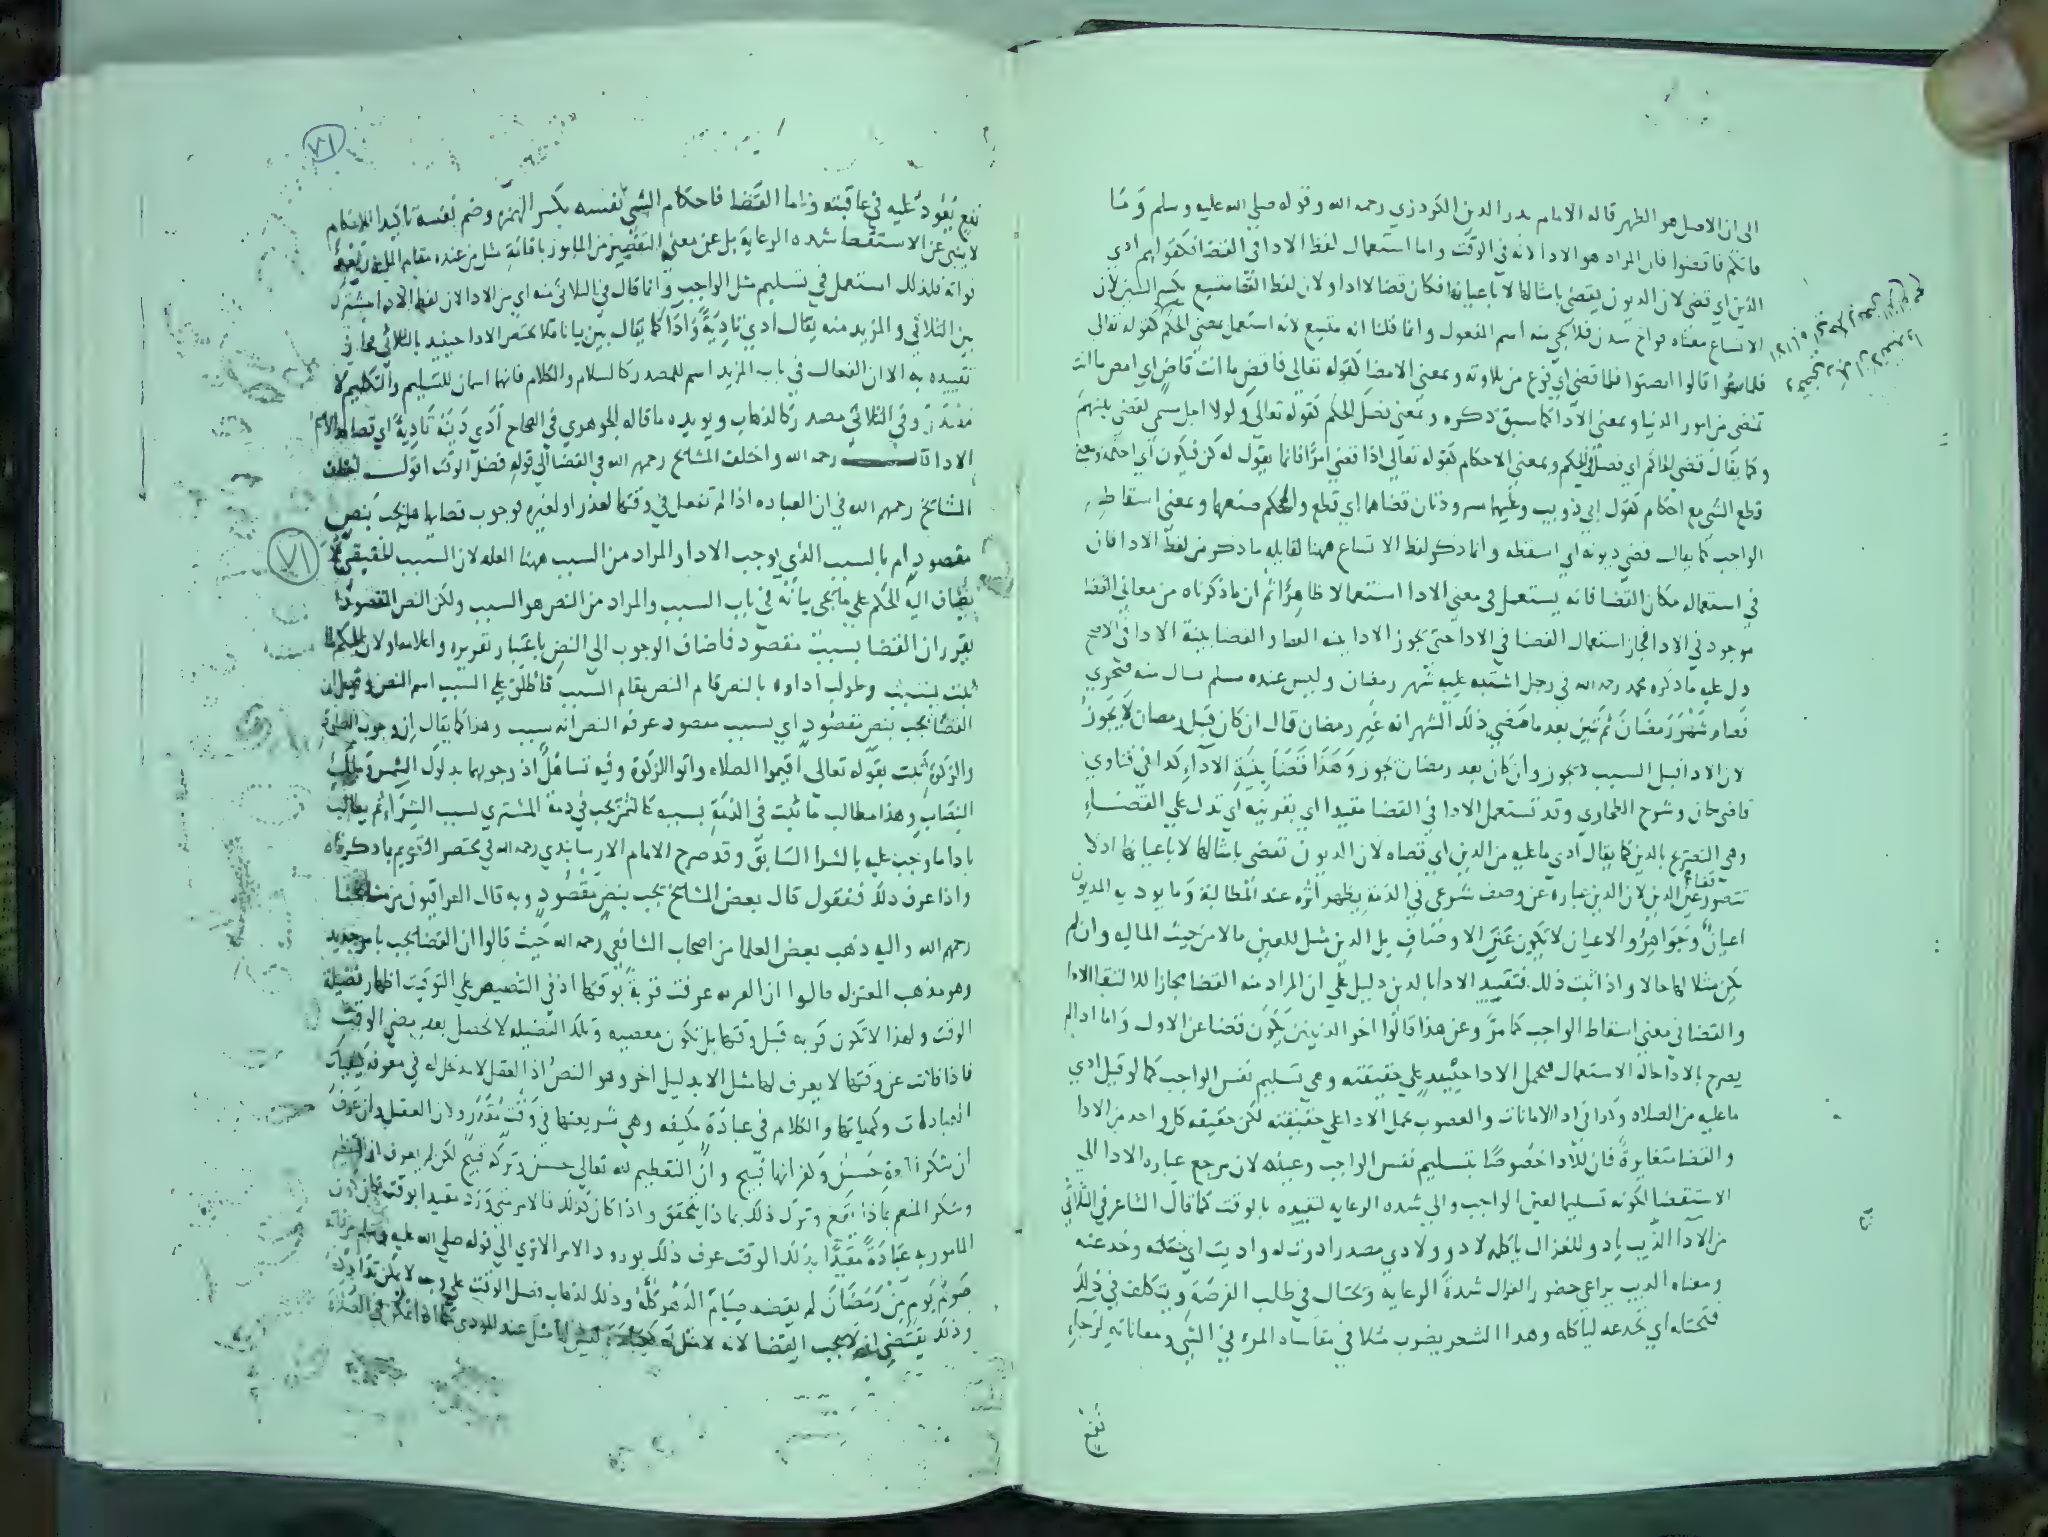 الى ان الاصل هو الظهر قاله الامام بدر الدين الكردري رحمه الله وقوله صلي الله عليه وسلم وما
فاتكم فاقضوا فان المراد هو الادا لانه في الوقت واما استعمال لفظ الادا في القضا فكقولهم ادي
الدين اي قضي لان الديون يقضي بامثالها لا باعيانها فكان قضا لا ادا ولان لفظ القضا متسع بكسر السين لان
الاتساع معناه فلا يجي منه اسم المفعول وانما قلنا انه متسع لانه استعمل بمعني الحكم كقوله تعالى
قالوا انصتوا فلما قضي اي فرغ من تلاوته وبمعني الامضا كقوله تعالي فاقض ما انت قاض اي امض ما انت
تمضي من امور الدنيا وبمعني الادا كما سبق ذكره وبمعني فصل الحكم كقوله تعالي ولولا اجل مسمي لقضي بينهم
وكما يقال قضي الحاكم اي فصل في الحكم وبمعني الاحكام كقوله تعالي اذا قضي امرا فانما يقول له كن فيكون اي
قطع الشي مع احكام كقول ابي ذويب وعليهما مسرودتان قضاهما اي قطع واحكم صنعهما وبمعني اسقاط
الواجب كما يقال قضي ديونه اي اسقطه وانما ذكر لفظ الاتساع ههنا لمقابلة ما ذكر من لفظ الادا فان
في استعماله مكان القضا فانه يستعمل في معني الادا استعمالا ظاهرا ثم ان ما ذكرناه من معاني القضا
موجود في الادا فجاز استعمال القضا في الادا حتي يجوز الادا بنية القضا والقضا بنية الادا في الاصح
دل عليه ما ذكره محمد رحمه الله في رجل اشتبه عليه شهر رمضان وليس عنده مسلم يسال منه فتحري
فصام شهر رمضان ثم تبين بعد ما مضي ذلك الشهر انه غير رمضان قال ان كان قبل رمضان لا يجوز
لان الادا قبل السبب لا يجوز وان كان بعد رمضان يجوز وهذا قضا بنية الادآ كذا في فتاوي
قاضي خان وشرح الطحاوي وقد تستعمل الادا في القضا مقيدا اي بقرينة اي تدل علي القضاء
وهي التصريح بالدين كما يقال ادي ما عليه من الدين اي قضاه لان الديون تقضي بامثالها لا باعيانها اذ لا
تتصور قضاء عين الدين لان الدين عبارة عن وصف شرعي في الذمة يظهر اثره عند المطالبة وما يودي به المديون
اعيان وجواهر والاعيان لا تكون عين الاوصاف بل الدين مثل للعين مالا من حيث الماليه وان لم
يكن مثلا لها حالا واذا ثبت ذلك فتقييد الادا بالدين دليل علي ان المراد منه القضا مجازا لالتقا الادا
والقضا في معني اسقاط الواجب كما مر وعن هذا قالوا اخر الدينين يكون قضا عن الاول واما اذا لم
يصرح بالادا حالة الاستعمال فيحمل الادا حينيذ علي حقيقته وهي تسليم نفس الواجب كما لو قيل ادي
ما عليه من الصلاة وكذا في ادا الامانات والغصوب يحمل الادا علي حقيقته لكن حقيقة كل واحد من الادا
والقضا متغايرة فان للادا خصوصا بتسليم نفس الواجب وعينه لان مرجع عبارة الادا الي
الاستقضا لكونه تسليما لعين الواجب والي شدة الرعاية لتقييده بالوقت كما قال الشاعر في الثلاثي
من الادآ الذيب يادو للغزال ياكله ادو وادي مصدر ادوت له واديت اي ختلته وخدعته
ومعناه الذيب يراعي حضور الغزال شدة الرعاية ويحتال في طلب الفرصة ويتكلف في ذلك
فيحتاله اي يخدعه لياكله وهذا الشعر يضرب مثلا في مقاساة المرء في الشي ومعاناته لرجاء
نفع
٧١
نفع يعود عليه في عاقبته واما القضا فاحكام الشي نفسه بكسر الهمزة وضم نفسه تاكيدا للاحكام
لا ينبي عن الاستقصا شدة الرعاية بل عن معني التقصير من المامور باقامة مثل من عنده مقام
فواته فلذلك استعمل في تسليم مثل الواجب وانما قال في الثلاثي منه اي من الادا لان لفظ الادا مشترك
بين الثلاثي والمزيد منه يقال ادي تادية وادا كما يقال بين بيانا فلا يختص الادا حينيذ بالثلاثي
تقييده به الا ان الفعال في باب المزيد اسم للمصدر كالسلام والكلام فانهما اسمان للتسليم والتكليم لا
مصدر وفي الثلاثي مصدر كالذهاب ويويده ما قاله الجوهري في الصحاح أدي دينه تادية اي قضاه والاسم
الادا قال رحمه الله واختلف المشايخ رحمهم الله في القضا الي قوله فضل الوقت اقول اختلف
المشايخ رحمهم الله في ان العبادة اذا لم تفعل في وقتها لعذر او لغيره فوجوب قضايها هل يجب بنص
مقصود ام بالسبب الذي يوجب الادا والمراد من السبب ههنا العلة لان السبب الحقيقي لا
يضاف اليه الحكم علي ما يجي بيانه في باب السبب والمراد من النص هو السبب ولكن النص المقصود
يقرر ان القضا بسبب مقصود فاضاف الوجوب الي النص باعتبار تقريره واعلامه او لان الحكم لما
ثبت بسبب وطولب اداوه بالنص قام النص مقام السبب فاطلق علي السبب اسم النص
القضا يجب بنص مقصود اي بسبب مقصود عرف النص انه سبب وهذا كما يقال ان وجوب الصلوة
والزكوة ثبت بقوله تعالي اقيموا الصلاة واتوا الزكوة وفيه تساهل اذ وجوبهما بدلوك الشمس وملك
النصاب وهذا مطالب ما ثبت في الذمة بسببه كالثمن يجب في ذمة المشتري بسبب الشراء ثم يطالب
بادا ما وجب عليه بالشرا السابق وقد صرح الامام الارسابندي رحمه الله في مختصر التقويم بما ذكرناه
واذا عرف ذلك فنقول قال بعض المشايخ يجب بنص مقصود وبه قال العراقيون من مشايخنا
رحمهم الله واليه ذهب بعض العلما من اصحاب الشافعي رحمه الله حيث قالوا ان القضا يجب بامر جديد
وهو مذهب المعتزلة قالوا ان القربة عرفت قربة بوقتها اذ في التنصيص علي التوقيت اظهار فضيلة
الوقت ولهذا لا تكون قربة قبل وقتها بل تكون معصية وتلك الفضيلة لا تحصل بعد مضي الوقت
فاذا فاتت عن وقتها لا يعرف لها مثل الا بدليل اخر وهو النص اذ العقل لا مدخل له في معرفة كيفيات
العبادات وكمياتها والكلام في عبادة مكيفة وهي شرعيتها في وقت مقدر ولان العقل وان عرف
ان شكر حسن وكفرانها قبيح وان التعظيم لله تعالي حسن وتركه قبيح لكن لم يعرف ان
وشكر المنعم بماذا يقع وترك ذلك بماذا يتحقق واذا كان كذلك فالامر متي ورد مقيدا بوقت كان
المامور به عبادة مقيدا بذلك الوقت عرف ذلك بورود الامر الا تري الي قوله صلي الله عليه وسلم من فاته
صوم يوم من رمضان لم يقضه صيام الدهر كله وذلك لذهاب فضل الوقت علي وجه لا يمكن تداركه
وذلك يقتضي ان لا يجب القضا لانه لا مثل له
٧١